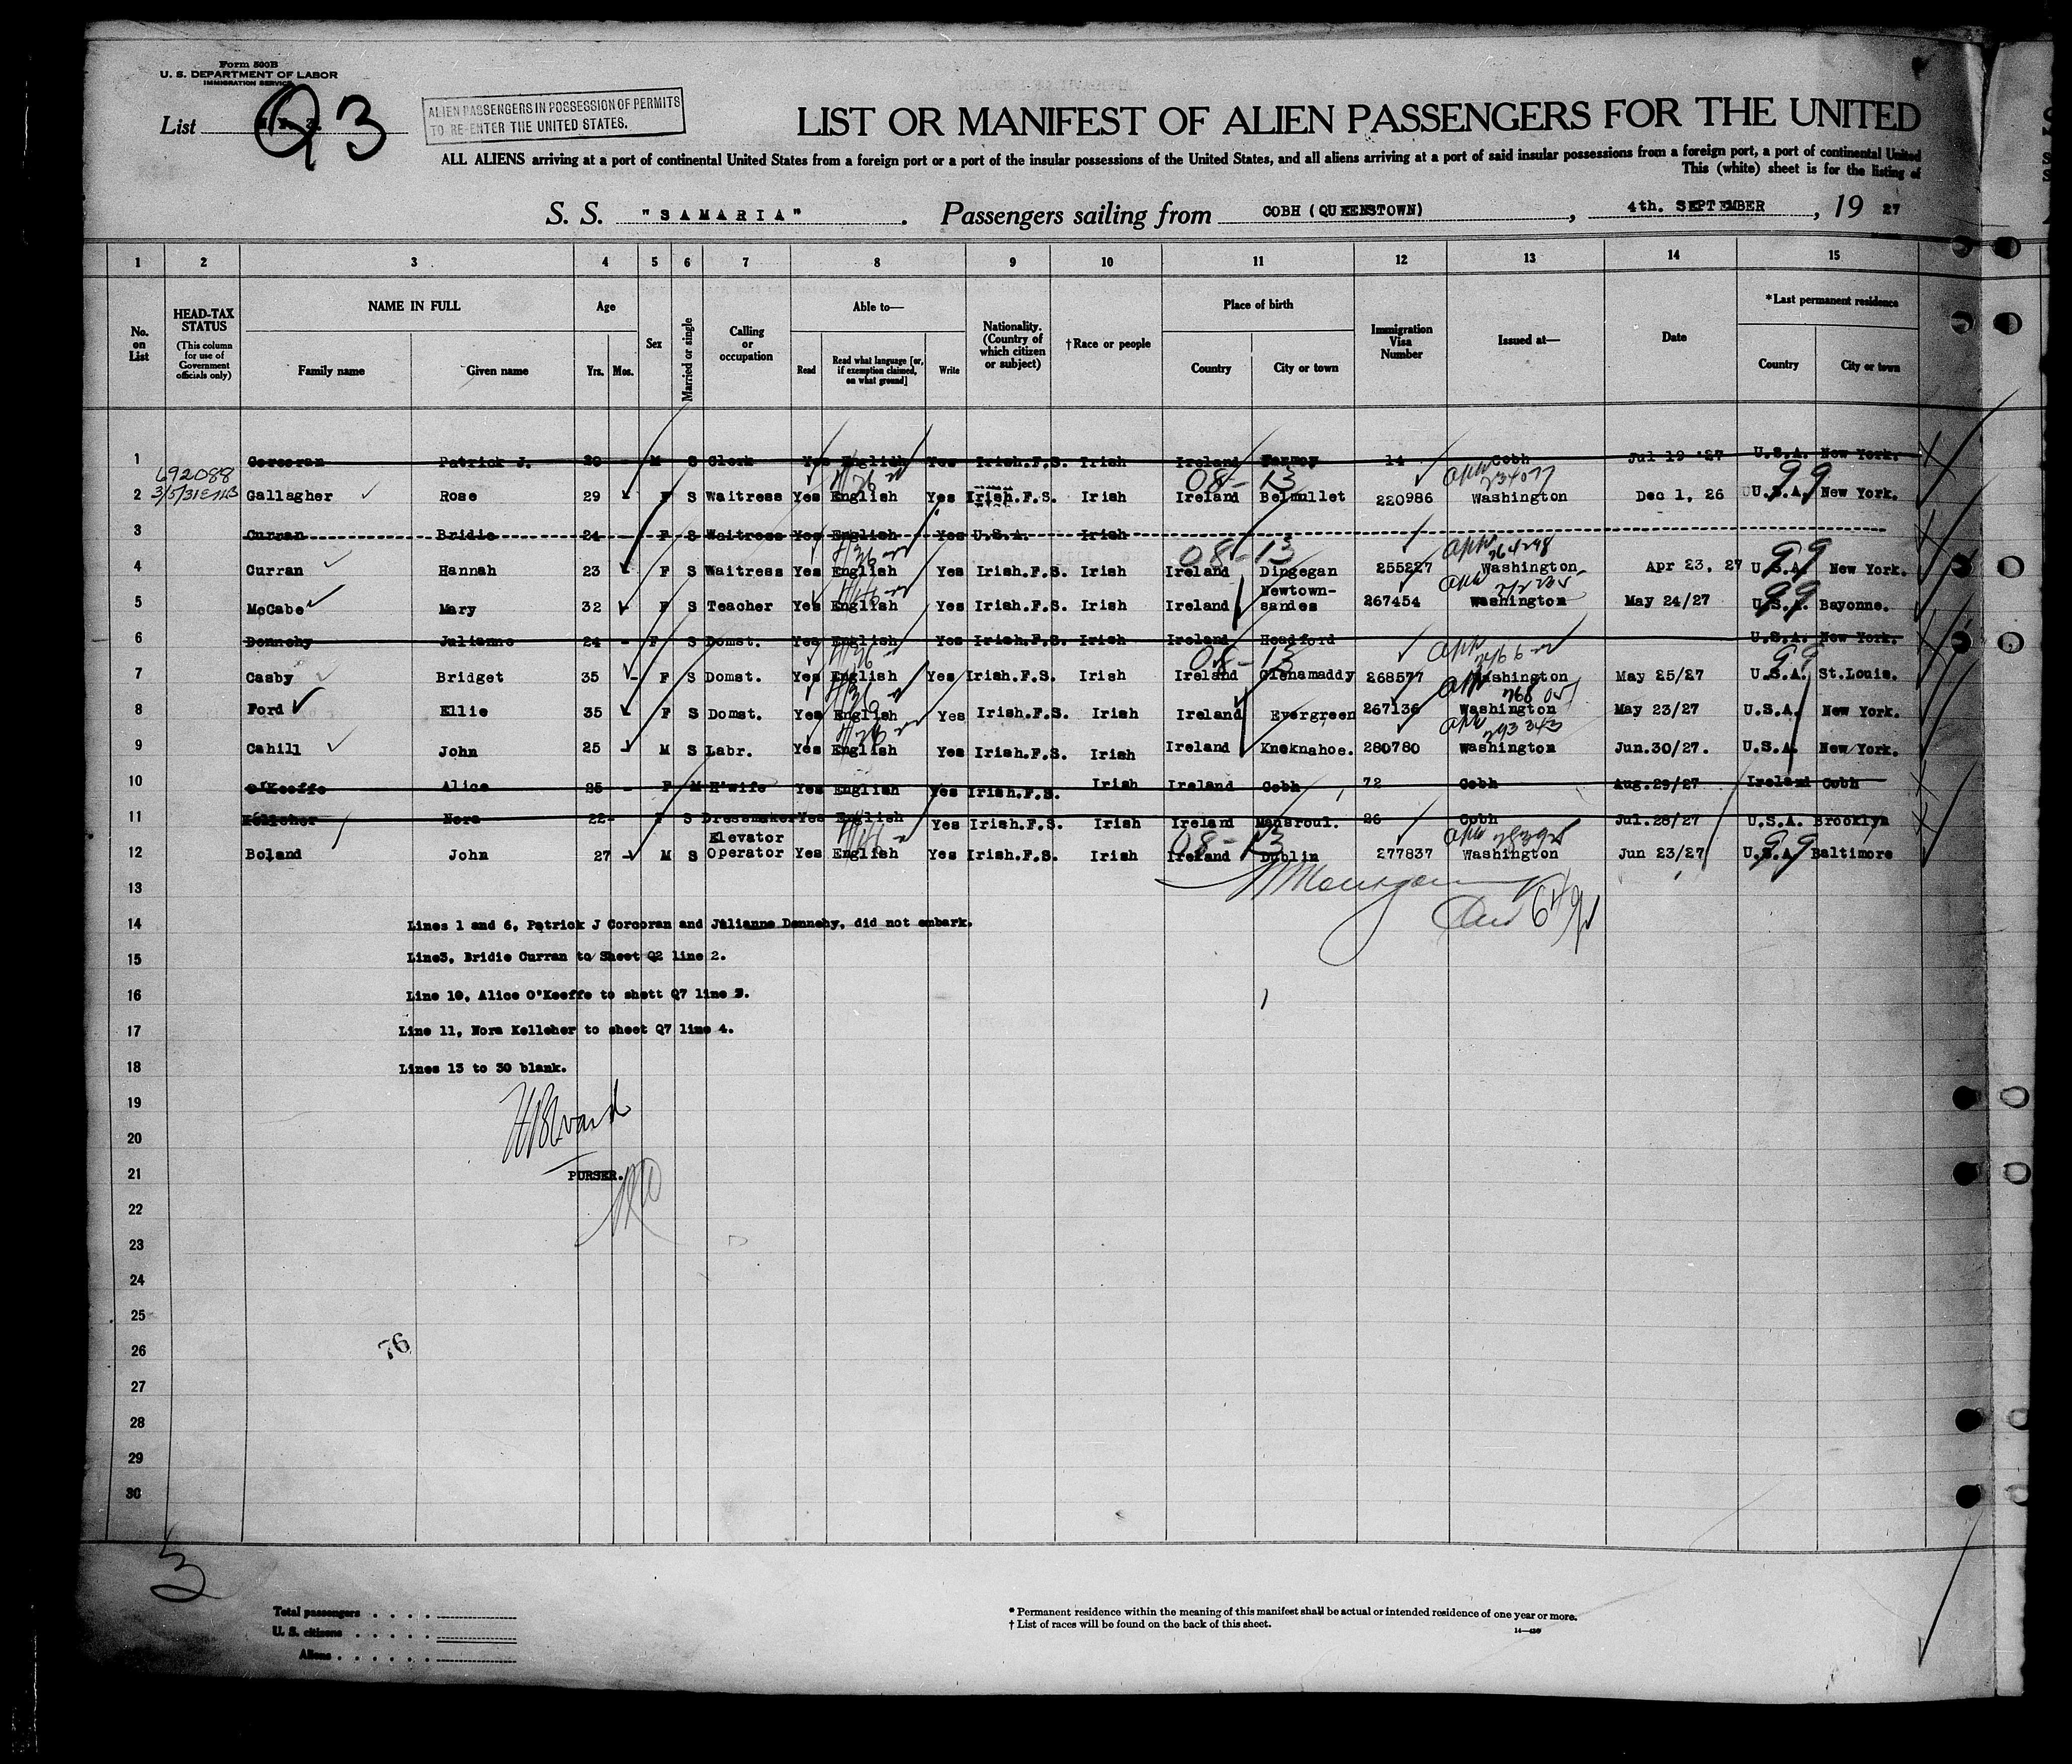 Form 500B
U. S. DEPARTMENT OF LABOR
IMMIGRATION SERVICE
List Q3
ALIEN PASSENGERS IN POSSESSION OF PERMITS
TO RE-ENTER THE UNITED STATES.
LIST OR MANIFEST OF ALIEN PASSENGERS FOR THE UNITED
ALL ALIENS arriving at a port of continental United States from a foreign port or a port of the insular possessions of the United States, and all aliens arriving at a port of said insular possessions from a foreign port, a port of continental United
This (white) sheet is for the listing of
S. S. "SAMARIA". Passengers sailing from COBH (QUEENSTOWN), 4th. SEPTEMBER, 19 27
1 2 3 4 5 6 7 8 9 10 11 12 13 14 15
No. on List
HEAD-TAX STATUS (This column for use of Government officials only)
NAME IN FULL
Family name Given name
Age
Yrs. Mos.
Sex
Married or single
Calling or occupation
Able to—
Read Read what language [or, if exemption claimed, on what ground] Write
Nationality. (Country of which citizen or subject)
†Race or people
Place of birth
Country City or town
Immigration Visa Number
Issued at—
Date
*Last permanent residence
Country City or town
1 Corcoran Patrick J. 20 - M S Clerk Yes English Yes Irish.F.S. Irish Ireland Fermoy 14 Cobh Jul 19 '27 U.S.A. New York.
692088
3/5/31
2 Gallagher Rose 29 F S Waitress Yes English Yes Irish.F.S. Irish Ireland Belmullet 220986 Washington Dec 1, 26 U.S.A. New York.
08-13
234077
99
3 Curran Bridie 24 - F S Waitress Yes English Yes U.S.A. Irish
4 Curran Hannah 23 F S Waitress Yes English Yes Irish.F.S. Irish Ireland Dingegan 255227 Washington Apr 23, 27 U.S.A. New York.
08-13
264248
99
5 McCabe Mary 32 F S Teacher Yes English Yes Irish.F.S. Irish Ireland Newtown-sandes 267454 Washington May 24/27 U.S.A. Bayonne.
99
6 Dennehy Julianne 24 - F S Domst. Yes English Yes Irish.F.S. Irish Ireland Headford U.S.A. New York.
7 Casby Bridget 35 - F S Domst. Yes English Yes Irish.F.S. Irish Ireland Glenamaddy 268577 Washington May 25/27 U.S.A. St.Louis.
08-13
99
8 Ford Ellie 35 F S Domst. Yes English Yes Irish.F.S. Irish Ireland Evergreen 267136 Washington May 23/27 U.S.A. New York.
9 Cahill John 25 - M S Labr. Yes English Yes Irish.F.S. Irish Ireland Kneknahoe. 280780 Washington Jun.30/27. U.S.A. New York.
293343
10 O'Keeffe Alice 25 - F M H'wife Yes English Yes Irish.F.S. Irish Ireland Cobh 72 Cobh Aug.29/27 Ireland Cobh
11 Kelleher Nora 22- F S Dressmaker Yes English Yes Irish.F.S. Irish Ireland Mansroul. 26 Cobh Jul.28/27 U.S.A. Brooklyn
12 Boland John 27 - M S Elevator Operator Yes English Yes Irish.F.S. Irish Ireland Dublin 277837 Washington Jun 23/27 U.S.A. Baltimore
08-13
99
13
14 Lines 1 and 6, Patrick J Corcoran and Julianne Dennehy, did not embark.
15 Line3, Bridie Curran to Sheet Q2 line 2.
16 Line 10, Alice O'Keeffe to shett Q7 line 3.
17 Line 11, Nora Kelleher to sheet Q7 line 4.
18 Lines 13 to 30 blank.
19
20
21 PURSER.
22
23
24
25
26
76
27
28
29
30
3
Total passengers
U. S. citizens
Aliens
* Permanent residence within the meaning of this manifest shall be actual or intended residence of one year or more.
† List of races will be found on the back of this sheet.
14—420